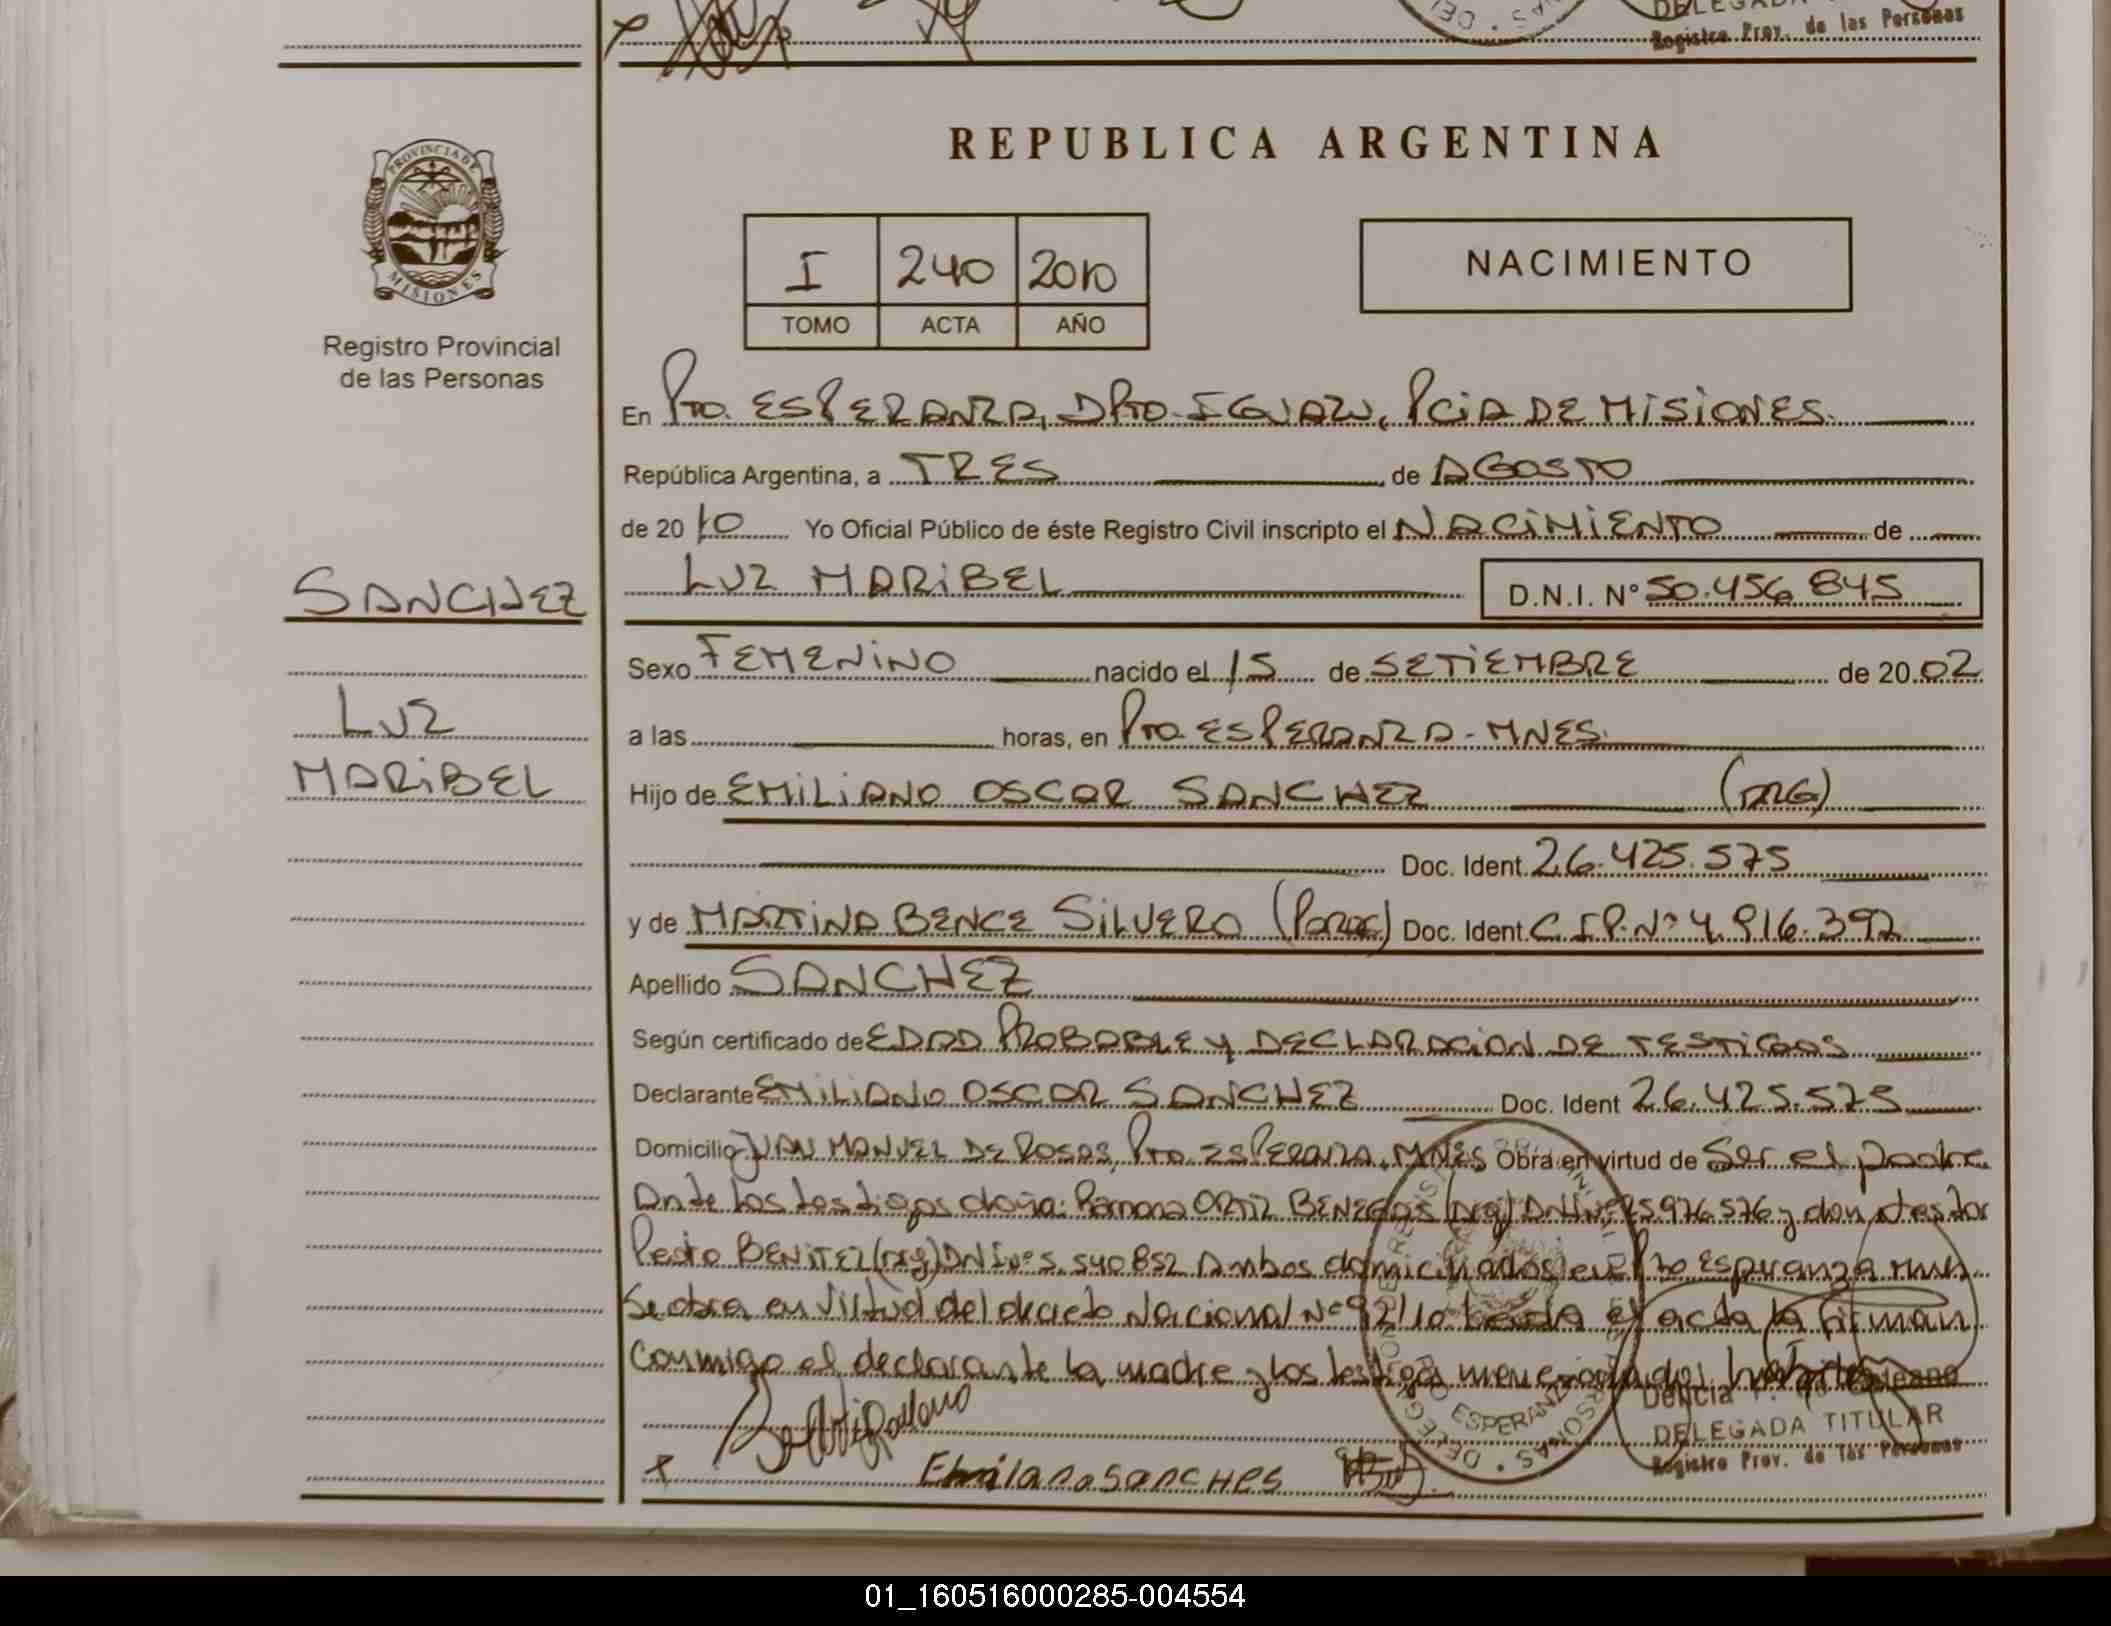 DELEGADA
Registro Prov. de las Personas
PROVINCIA DE
MISIONES
Registro Provincial
de las Personas
REPUBLICA ARGENTINA
I 240 2010
TOMO ACTA AÑO
NACIMIENTO
En Pto. ESPERANZA, DPTO. IGUAZU, PCIA DE MISIONES.
República Argentina, a TRES de AGOSTO
de 2010 Yo Oficial Público de éste Registro Civil inscripto el NACIMIENTO de
LUZ MARIBEL D.N.I. N° 50.456.845
SANCHEZ
LUZ
MARIBEL
Sexo FEMENINO nacido el 15 de SETIEMBRE de 2002
a las horas, en Pto. ESPERANZA - MNES.
Hijo de EMILIANO OSCAR SANCHEZ (ARG)
Doc. Ident. 26.425.575
y de MARTINA BENCE SILVERO (Parag) Doc. Ident. C.I.P. N° 4.916.392
Apellido SANCHEZ
Según certificado de EDAD PROBABLE Y DECLARACION DE TESTIGOS
Declarante EMILIANO OSCAR SANCHEZ Doc. Ident 26.425.575
Domicilio JUAN MANUEL DE ROSAS, Pto. ESPERANZA, MNES Obra en virtud de Ser el padre
Ante los testigos doña: Ramona ORTIZ BENEGAS (Arg) DNI N° 976.576 y don
Pedro BENITEZ (Arg) DNI N° 5.540.852 Ambos domiciliados en Pto Esperanza Mnes.
Se obra en virtud del decreto Nacional N° 92/10 Leida el acta la firman
Conmigo el declarante la madre y los testigos mencionados
Emiliano SANCHES
DELEGADA TITULAR
Registro Prov. de las Personas
01_160516000285-004554